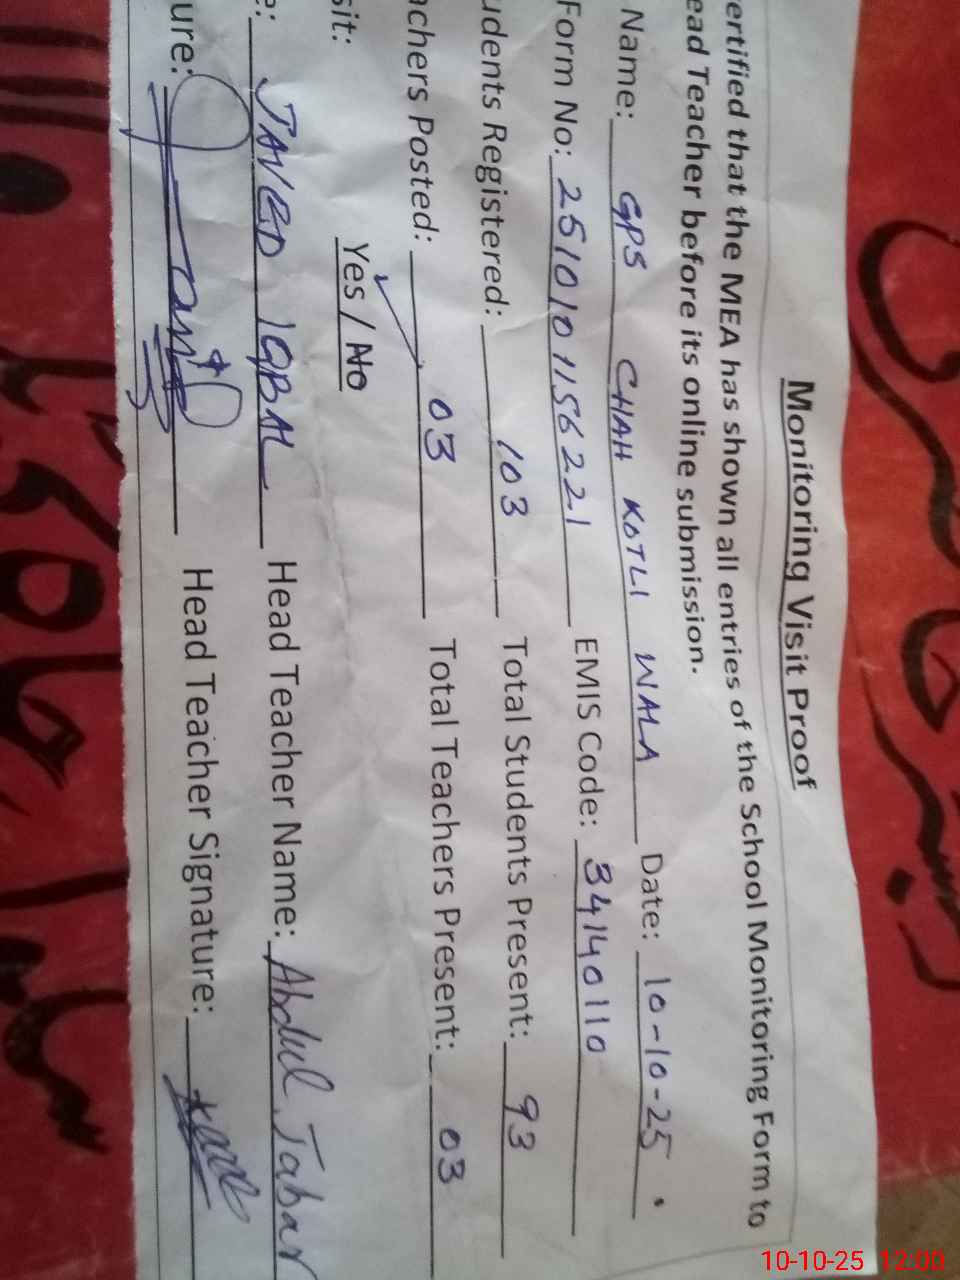 Monitoring Visit Proof
ertified that the MEA has shown all entries of the School Monitoring Form to
ead Teacher before its online submission.
Name: GPS CHAH KOTLI WALA Date: 10-10-25.
Form No: 2510101156221 EMIS Code: 34140110
udents Registered: 103 Total Students Present: 93
achers Posted: 03 Total Teachers Present: 03
sit: Yes / No
e: JAVED IQBAL Head Teacher Name: Abdul Jabar
ure: Head Teacher Signature:
10-10-25 12:00